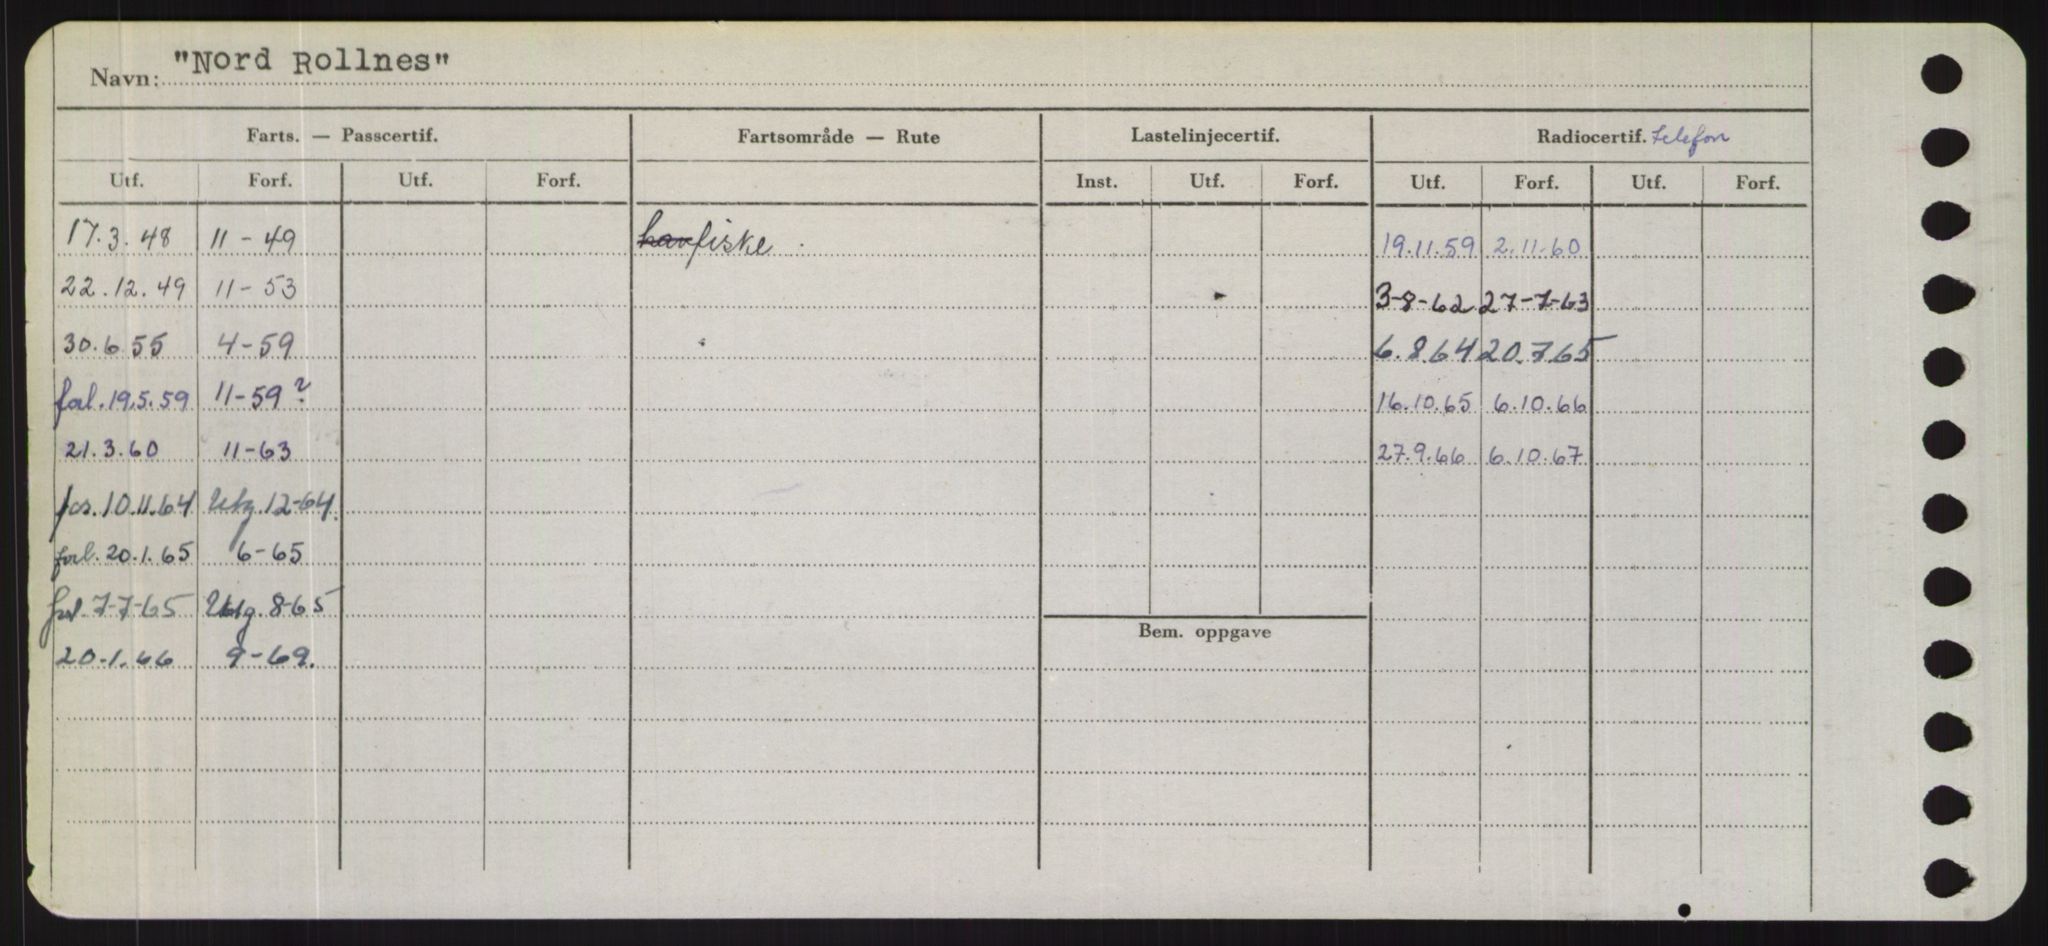 Navn: "Nord Rollnes"
Farts. — Passcertif. Fartsområde — Rute Lastelinjecertif. Radiocertif. telefon
Utf. Forf. Utf. Forf. Inst. Utf. Forf. Utf. Forf. Utf. Forf.
17.3.48 11-49 havfiske. 19.11.59 2.11.60
22.12.49 11-53 3-8-62 27-7-63
30.6.55 4-59 6.8.64 20.7.65
forl.19.5.59 11-59? 16.10.65 6.10.66
21.3.60 11-63 27.9.66 6.10.67
10.11.64 Utg.12-64.
forl.20.1.65 6-65
7-7-65 Utg.8-65
Bem. oppgave
20.1.66 9-69.